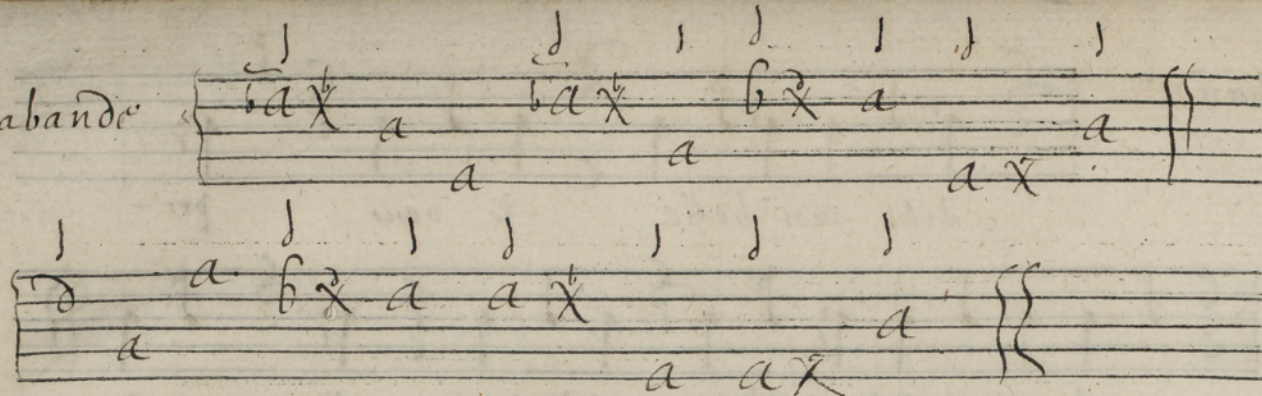 abandé ba x a a ba x a b x a a x a
d a a b x a a x a a x a